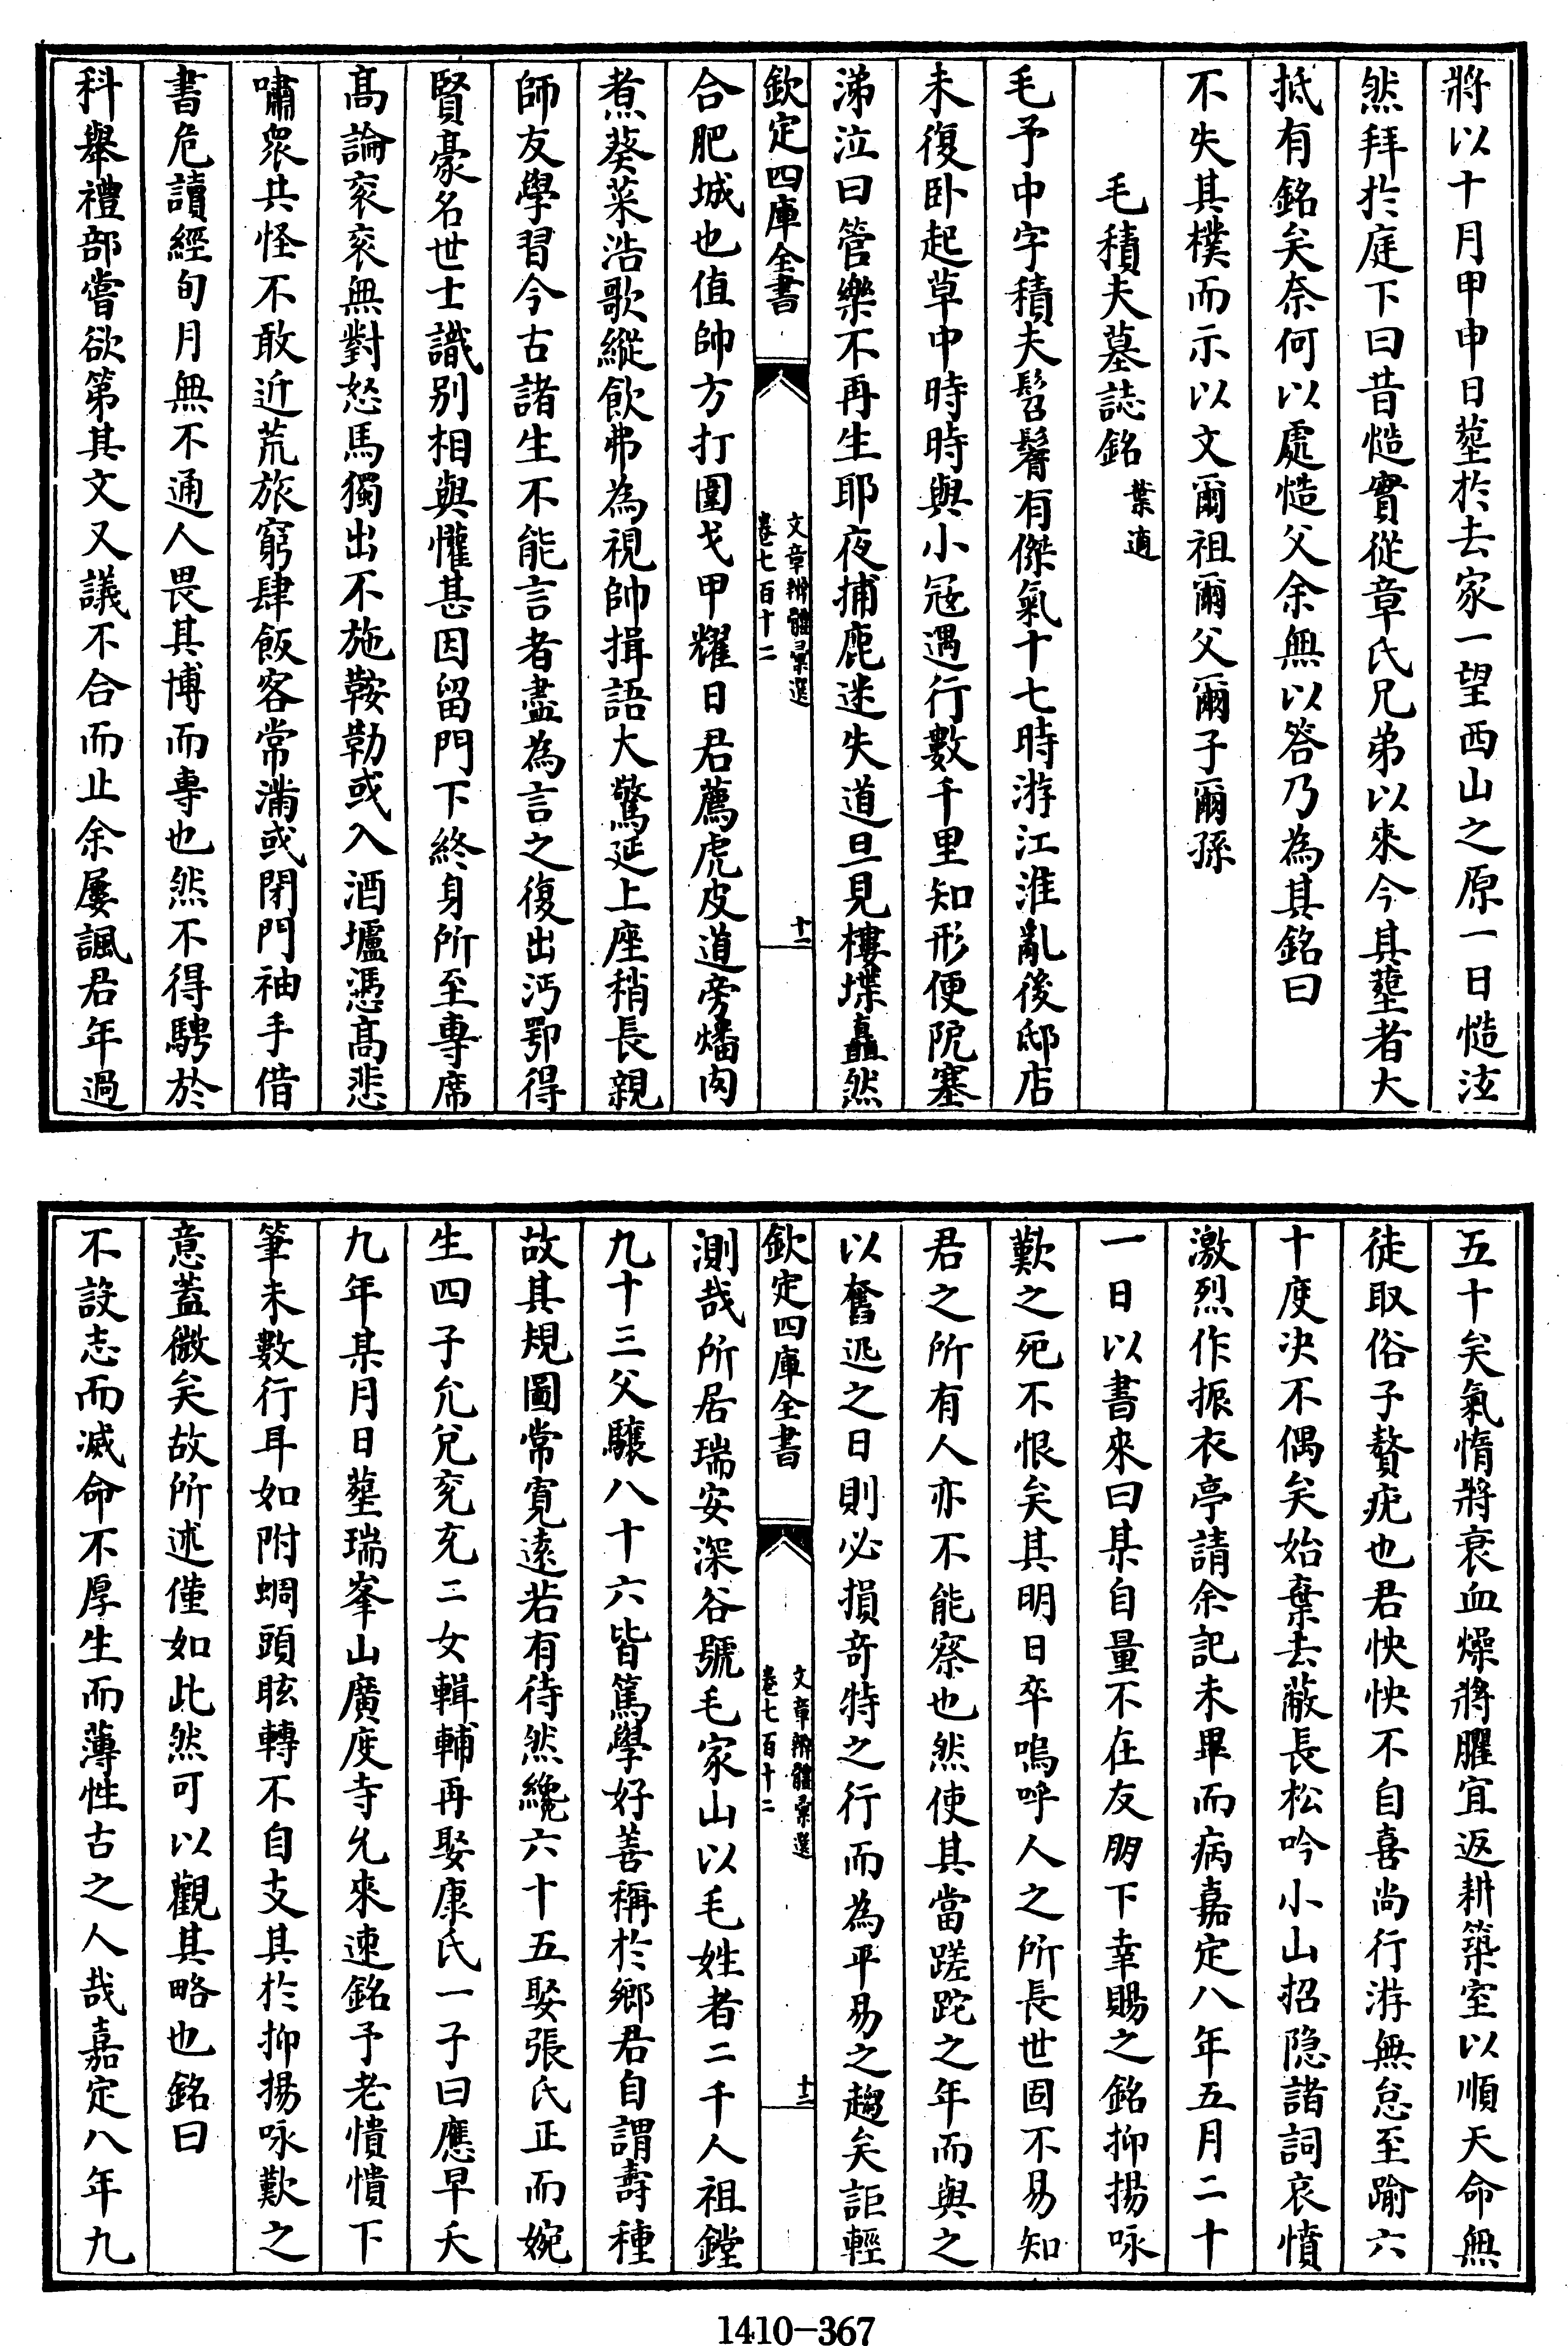 將以十月甲申日塟於去家一望西山之原一日慥泫
然拜於庭下曰昔慥實從章氏兄弟以來今其塟者大
抵有銘矣奈何以處慥父余無以答乃為其銘曰
不失其樸而示以文爾祖爾父爾子爾孫
毛積夫墓誌銘 葉適
毛予中字積夫髫鬌有傑氣十七時游江淮亂後邸店
未復卧起草中時時與小冦遇行數千里知形便阨塞
涕泣曰管樂不再生耶夜捕鹿迷失道旦見樓堞矗然
欽定四庫全書
文章辨體彚選
卷七百十二
十二
合肥城也值帥方打圍戈甲耀日君薦虎皮道旁燔肉
煮葵菜浩歌縱飲弗為視帥揖語大驚延上座稍長親
師友學習今古諸生不能言者盡為言之復出沔鄂得
賢豪名世士識别相與懽甚因留門下終身所至專席
髙論衮衮無對怒馬獨出不施鞍勒或入酒壚憑髙悲
嘯衆共怪不敢近荒旅窮肆飯客常滿或閉門袖手借
書危讀經旬月無不通人畏其博而專也然不得騁於
科舉禮部嘗欲第其文又議不合而止余屢諷君年過
五十矣氣惰將衰血燥將臞宜返耕築室以順天命無
徒取俗子贅疣也君怏怏不自喜尚行游無怠至踰六
十度决不偶矣始棄去蔽長松吟小山招隐諸詞哀憤
激烈作振衣亭請余記未畢而病嘉定八年五月二十
一日以書來曰某自量不在友朋下幸賜之銘抑揚咏
歎之死不恨矣其明日卒嗚呼人之所長世固不易知
君之所有人亦不能察也然使其當蹉跎之年而與之
以奮迅之日則必損竒特之行而為平易之趨矣詎輕
欽定四庫全書
文章辨體彚選
卷七百十二
十三
測哉所居瑞安深谷號毛家山以毛姓者二千人祖鏜
九十三父驤八十六皆篤學好善稱於鄉君自謂壽種
故其規圖常寛逺若有待然纔六十五娶張氏正而婉
生四子允兌兖充二女輯輔再娶康氏一子曰應早夭
九年某月日塟瑞峯山廣度寺允來速銘予老憒憒下
筆未數行耳如附蜩頭眩轉不自支其於抑揚咏歎之
意蓋微矣故所述僅如此然可以觀其略也銘曰
不設志而滅命不厚生而薄性古之人哉嘉定八年九
1410-367